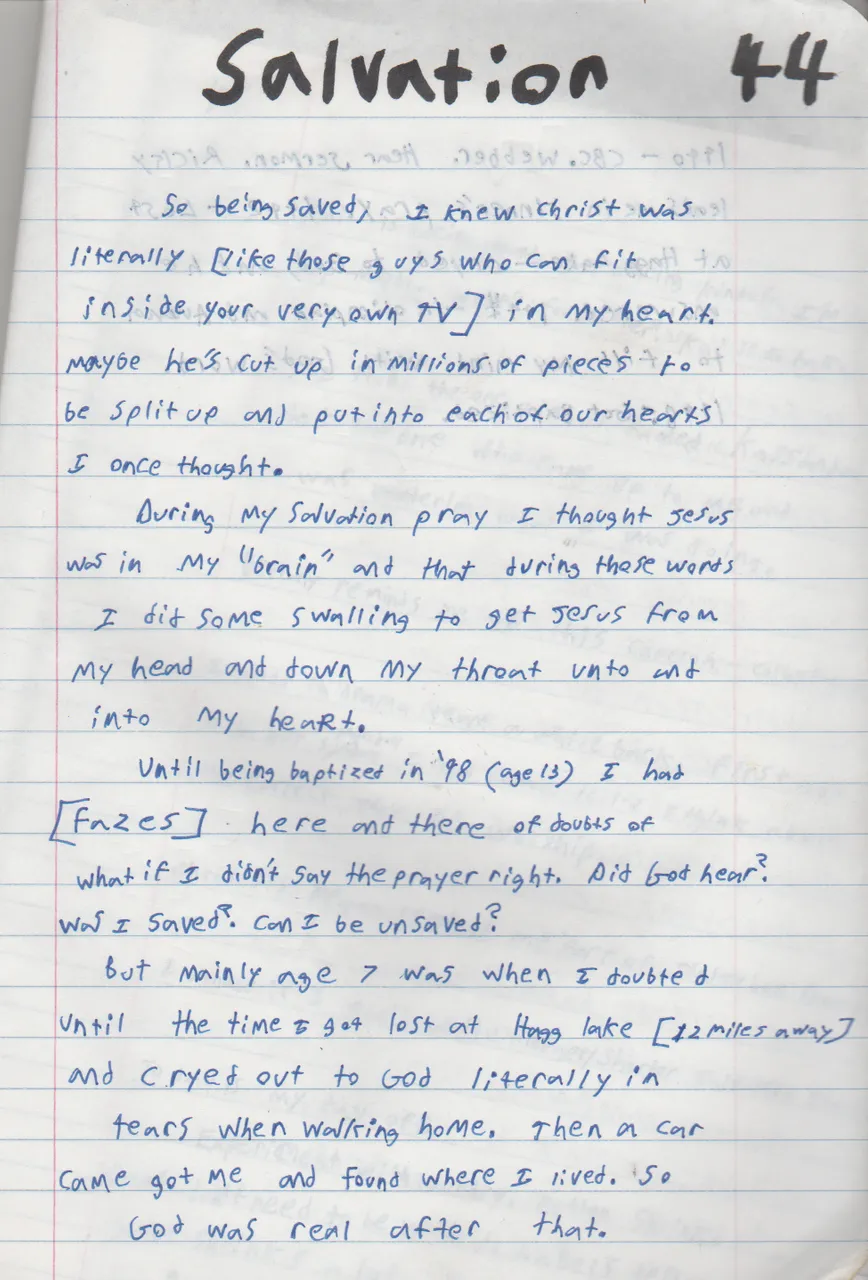 Salvation 44
So being saved, I knew Christ was
literally [like those guys who can fit
inside your very own TV] in my heart.
maybe he's cut up in millions of pieces to
be split up and put into each of our hearts
I once thought.
During my salvation pray I thought Jesus
was in my "brain" and that during these words
I did some swalling to get Jesus from
my head and down my throat unto and
into my heart.
Until being baptized in '98 (age 13) I had
[fazes] here and there of doubts of
what if I didn't say the prayer right. Did God hear?
was I saved? can I be unsaved?
But mainly age 7 was when I doubted
until the time I got lost at Hagg lake [12 miles away]
and cryed out to God literally in
tears when walking home. Then a car
came got me and found where I lived. So
God was real after that.